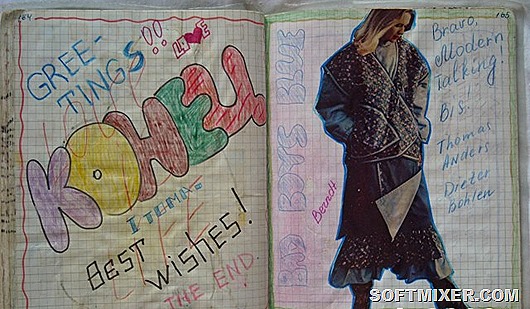 164
GREE-
TINGS!!
КОНЕЦ.
BEST
WISHES!
THE END.
165
BAD BOYS BLUE
Bravo,
Modern
Talking!
BIS!
Thomas
Anders
Dieter
Bohlen
SOFTMIXER.COM